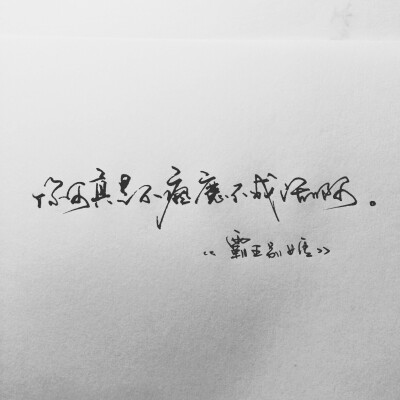 你可真是不疯魔不成活啊。
《霸王别姬》